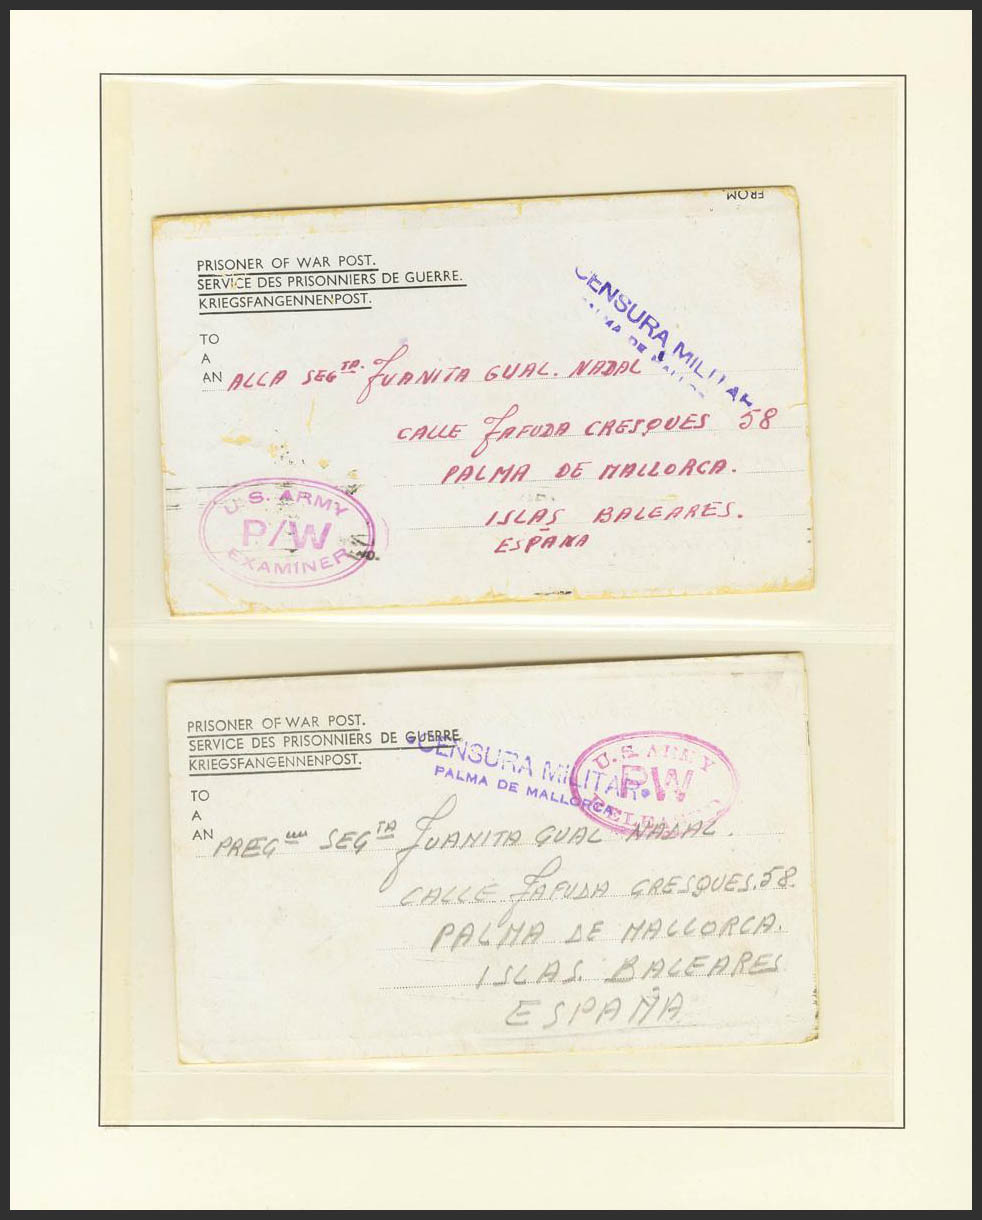 FROM.
PRISONER OF WAR POST.
SERVICE DES PRISONNIERS DE GUERRE.
KRIEGSFANGENNENPOST.
CENSURA MILITAR
PALMA DE MALLOR
TO
A
AN ALLA SEGTA. JUANITA GUAL. NADAL
CALLE JAFUDA CRESQUES 58
PALMA DE MALLORCA.
ISLAS BALEARES.
ESPAÑA
U.S. ARMY
P/W
EXAMINER
PRISONER OF WAR POST.
SERVICE DES PRISONNIERS DE GUERRE.
KRIEGSFANGENNENPOST.
CENSURA MILITAR
PALMA DE MALLORCA
U.S. ARMY
PW
TO
A
AN PREG SEGTA JUANITA GUAL NADAL.
CALLE JAFUDA CRESQUES. 58.
PALMA DE MALLORCA.
ISLAS. BALEARES
ESPAÑA